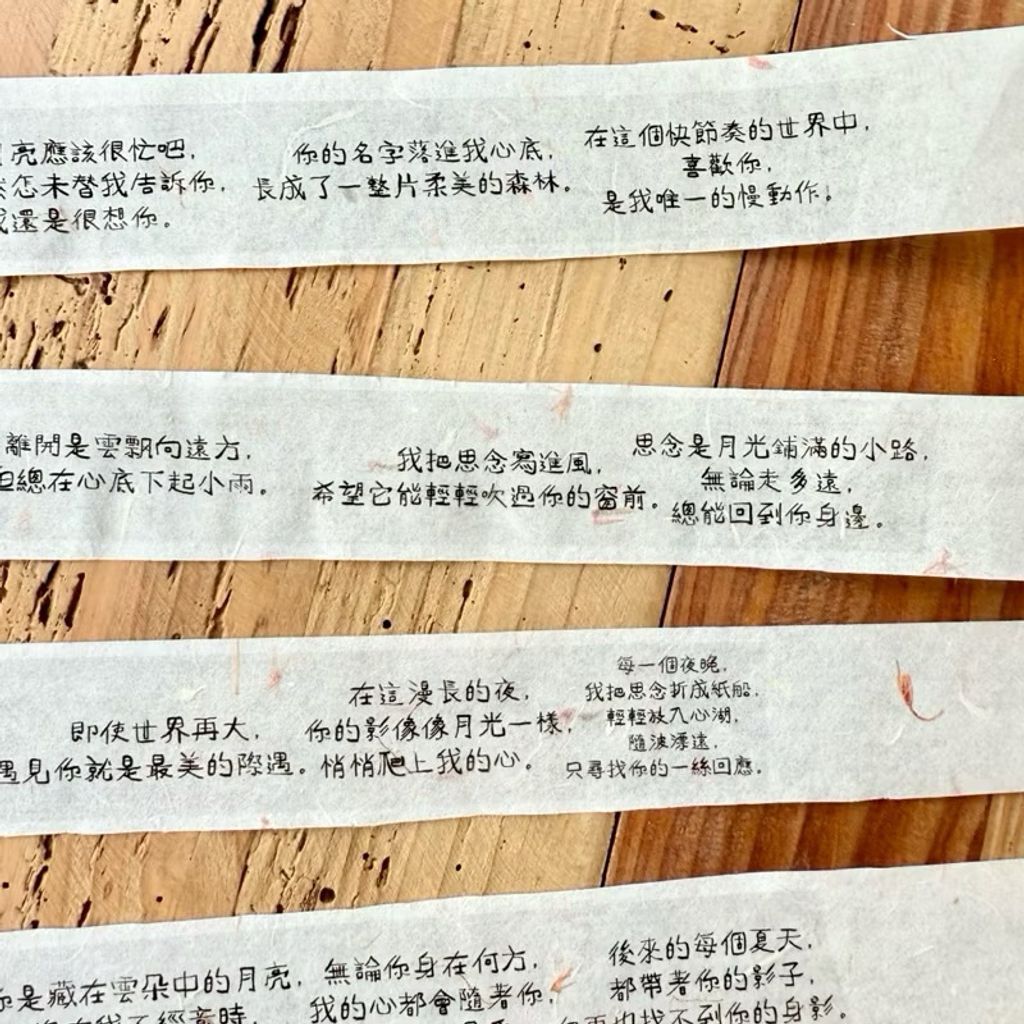 亮應該很忙吧,
怎未替我告訴你,
還是很想你。
你的名字落進我心底,
長成了一整片柔美的森林。
在這個快節奏的世界中,
喜歡你,
是我唯一的慢動作。
離開是雲飄向遠方,
但總在心底下起小雨。
我把思念寫進風,
希望它能輕輕吹過你的窗前。
思念是月光鋪滿的小路,
無論走多遠,
總能回到你身邊。
即使世界再大,
遇見你就是最美的際遇。
在這漫長的夜,
你的影像像月光一樣,
悄悄爬上我的心。
每一個夜晚,
我把思念折成紙船,
輕輕放入心湖,
隨波漂遠,
只尋找你的一絲回應。
你是藏在雲朵中的月亮,
我不經意時,
無論你身在何方,
我的心都會隨著你,
後來的每個夏天,
都帶著你的影子,
再也找不到你的身影。